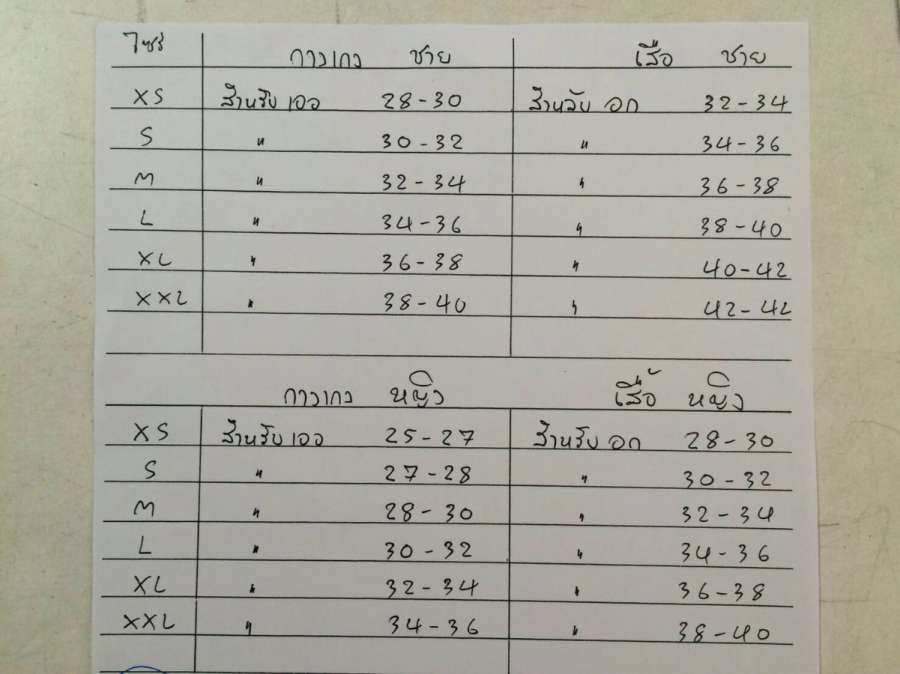 ไซร์ กางเกง ชาย เสือ ชาย
XS สำหรับ เอว 28-30 สำหรับ อก 32-34
S " 30-32 " 34-36
M " 32-34 " 36-38
L " 34-36 " 38-40
XL " 36-38 " 40-42
XXL " 38-40 " 42-44
กางเกง หญิง เสื้อ หญิง
XS สำหรับ เอว 25-27 สำหรับ อก 28-30
S " 27-28 " 30-32
M " 28-30 " 32-34
L " 30-32 " 34-36
XL " 32-34 " 36-38
XXL " 34-36 " 38-40